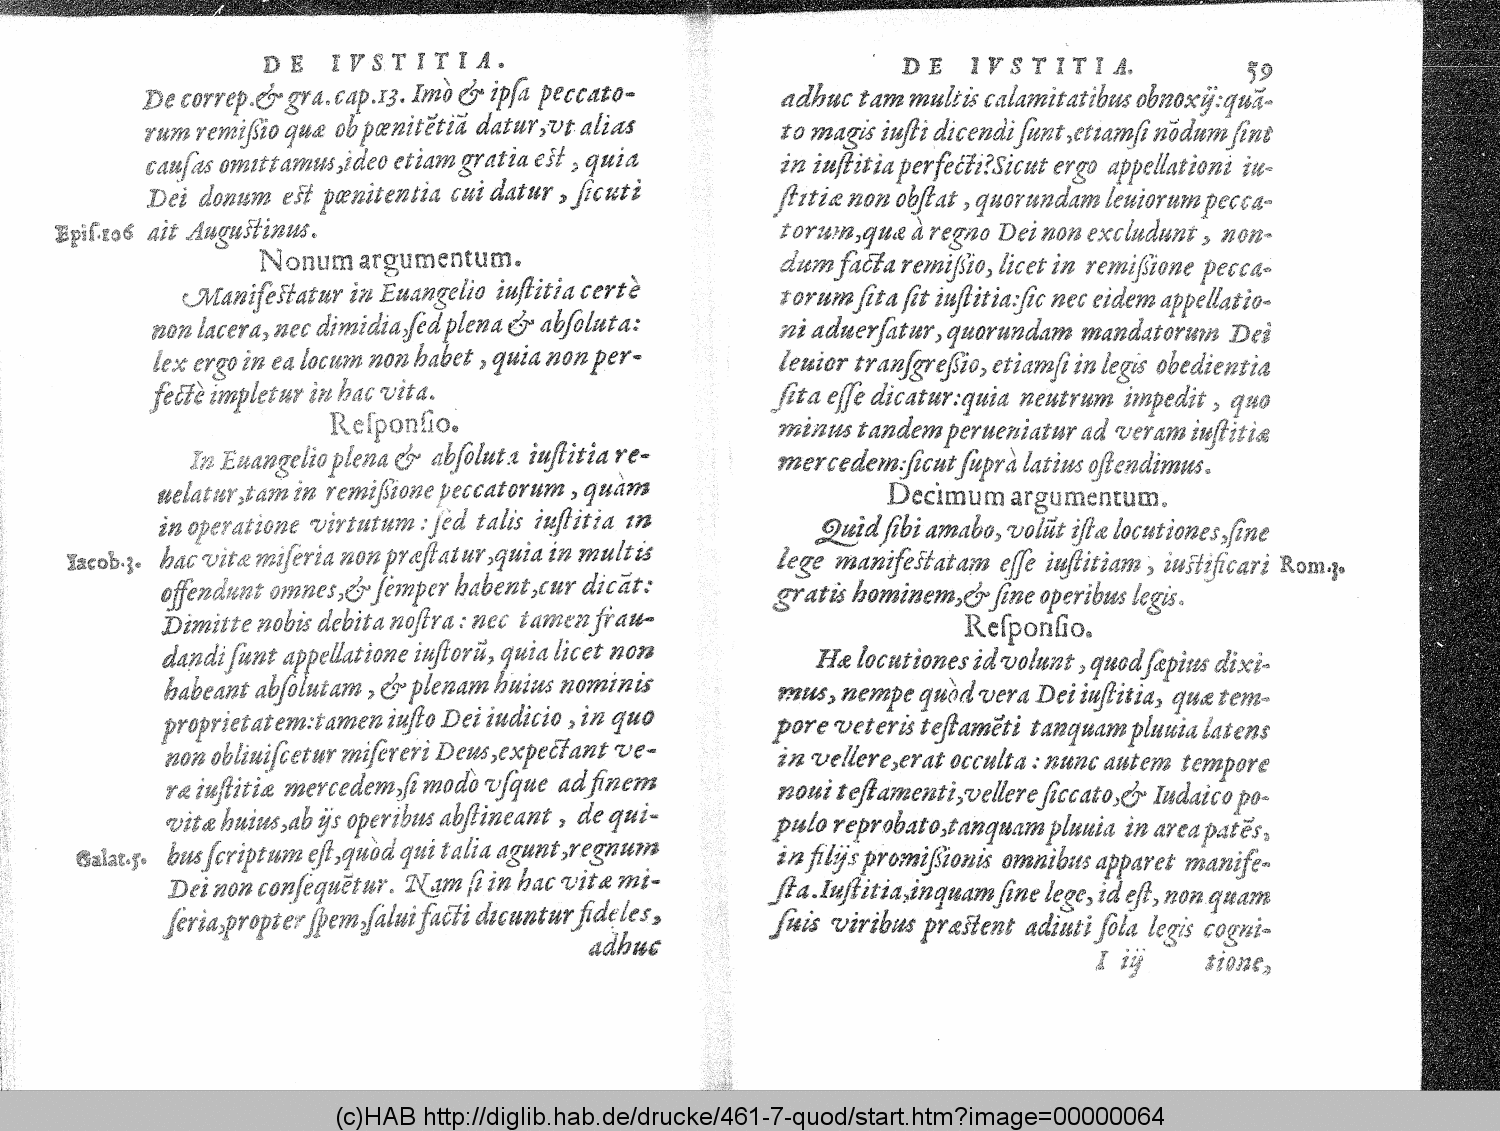 DE IVSTITIA.
De correp.& gra. cap.13. Imò & ipſa peccato-
rum remiſsio quæ ob pœnitẽtiã datur, vt alias
cauſas omittamus, ideo etiam gratia eſt, quia
Dei donum eſt pœnitentia cui datur, ſicuti
Epiſ.106 ait Auguſtinus.
Nonum argumentum.
Manifeſtatur in Euangelio iuſtitia certè
non lacera, nec dimidia, ſed plena & abſoluta:
lex ergo in ea locum non habet, quia non per-
fectè impletur in hac vita.
Reſponſio.
In Euangelio plena & abſoluta iuſtitia re-
uelatur, tam in remiſsione peccatorum, quàm
in operatione virtutum: ſed talis iuſtitia in
Iacob.3. hac vitæ miſeria non præſtatur, quia in multis
offendunt omnes, & ſemper habent, cur dicãt:
Dimitte nobis debita noſtra: nec tamen frau-
dandi ſunt appellatione iuſtorũ, quia licet non
habeant abſolutam, & plenam huius nominis
proprietatem: tamen iuſto Dei iudicio, in quo
non obliuiſcetur miſereri Deus, expectant ve-
ræ iuſtitiæ mercedem, ſi modò vſque ad finem
vitæ huius, ab ijs operibus abſtineant, de qui-
Galat.5. bus ſcriptum eſt, quòd qui talia agunt, regnum
Dei non conſequẽtur. Nam ſi in hac vitæ mi-
ſeria, propter ſpem, ſalui facti dicuntur fideles,
adhuc
DE IVSTITIA. 59
adhuc tam multis calamitatibus obnoxij: quã-
to magis iuſti dicendi ſunt, etiamſi nõdum ſint
in iuſtitia perfecti? Sicut ergo appellationi iu-
ſtitiæ non obſtat, quorundam leuiorum pecca-
torum, quæ à regno Dei non excludunt, non-
dum facta remiſsio, licet in remiſsione pecca-
torum ſita ſit iuſtitia: ſic nec eidem appellatio-
ni aduerſatur, quorundam mandatorum Dei
leuior tranſgreſsio, etiamſi in legis obedientia
ſita eſſe dicatur: quia neutrum impedit, quo
minus tandem perueniatur ad veram iuſtitiæ
mercedem: ſicut ſuprà latius oſtendimus.
Decimum argumentum.
Quid ſibi amabo, volũt iſtæ locutiones, ſine
lege manifeſtatam eſſe iuſtitiam, iuſtificari Rom.3.
gratis hominem, & ſine operibus legis.
Reſponſio.
Hæ locutiones id volunt, quod ſæpius dixi-
mus, nempe quòd vera Dei iuſtitia, quæ tem-
pore veteris teſtamẽti tanquam pluuia latens
in vellere, erat occulta: nunc autem tempore
noui teſtamenti, vellere ſiccato, & Iudaico po-
pulo reprobato, tanquam pluuia in area patẽs,
in filijs promiſsionis omnibus apparet manife-
ſta. Iuſtitia, inquam ſine lege, id eſt, non quam
ſuis viribus præſtent adiuti ſola legis cogni-
I iij tione,
(c)HAB http://diglib.hab.de/drucke/461-7-quod/start.htm?image=00000064